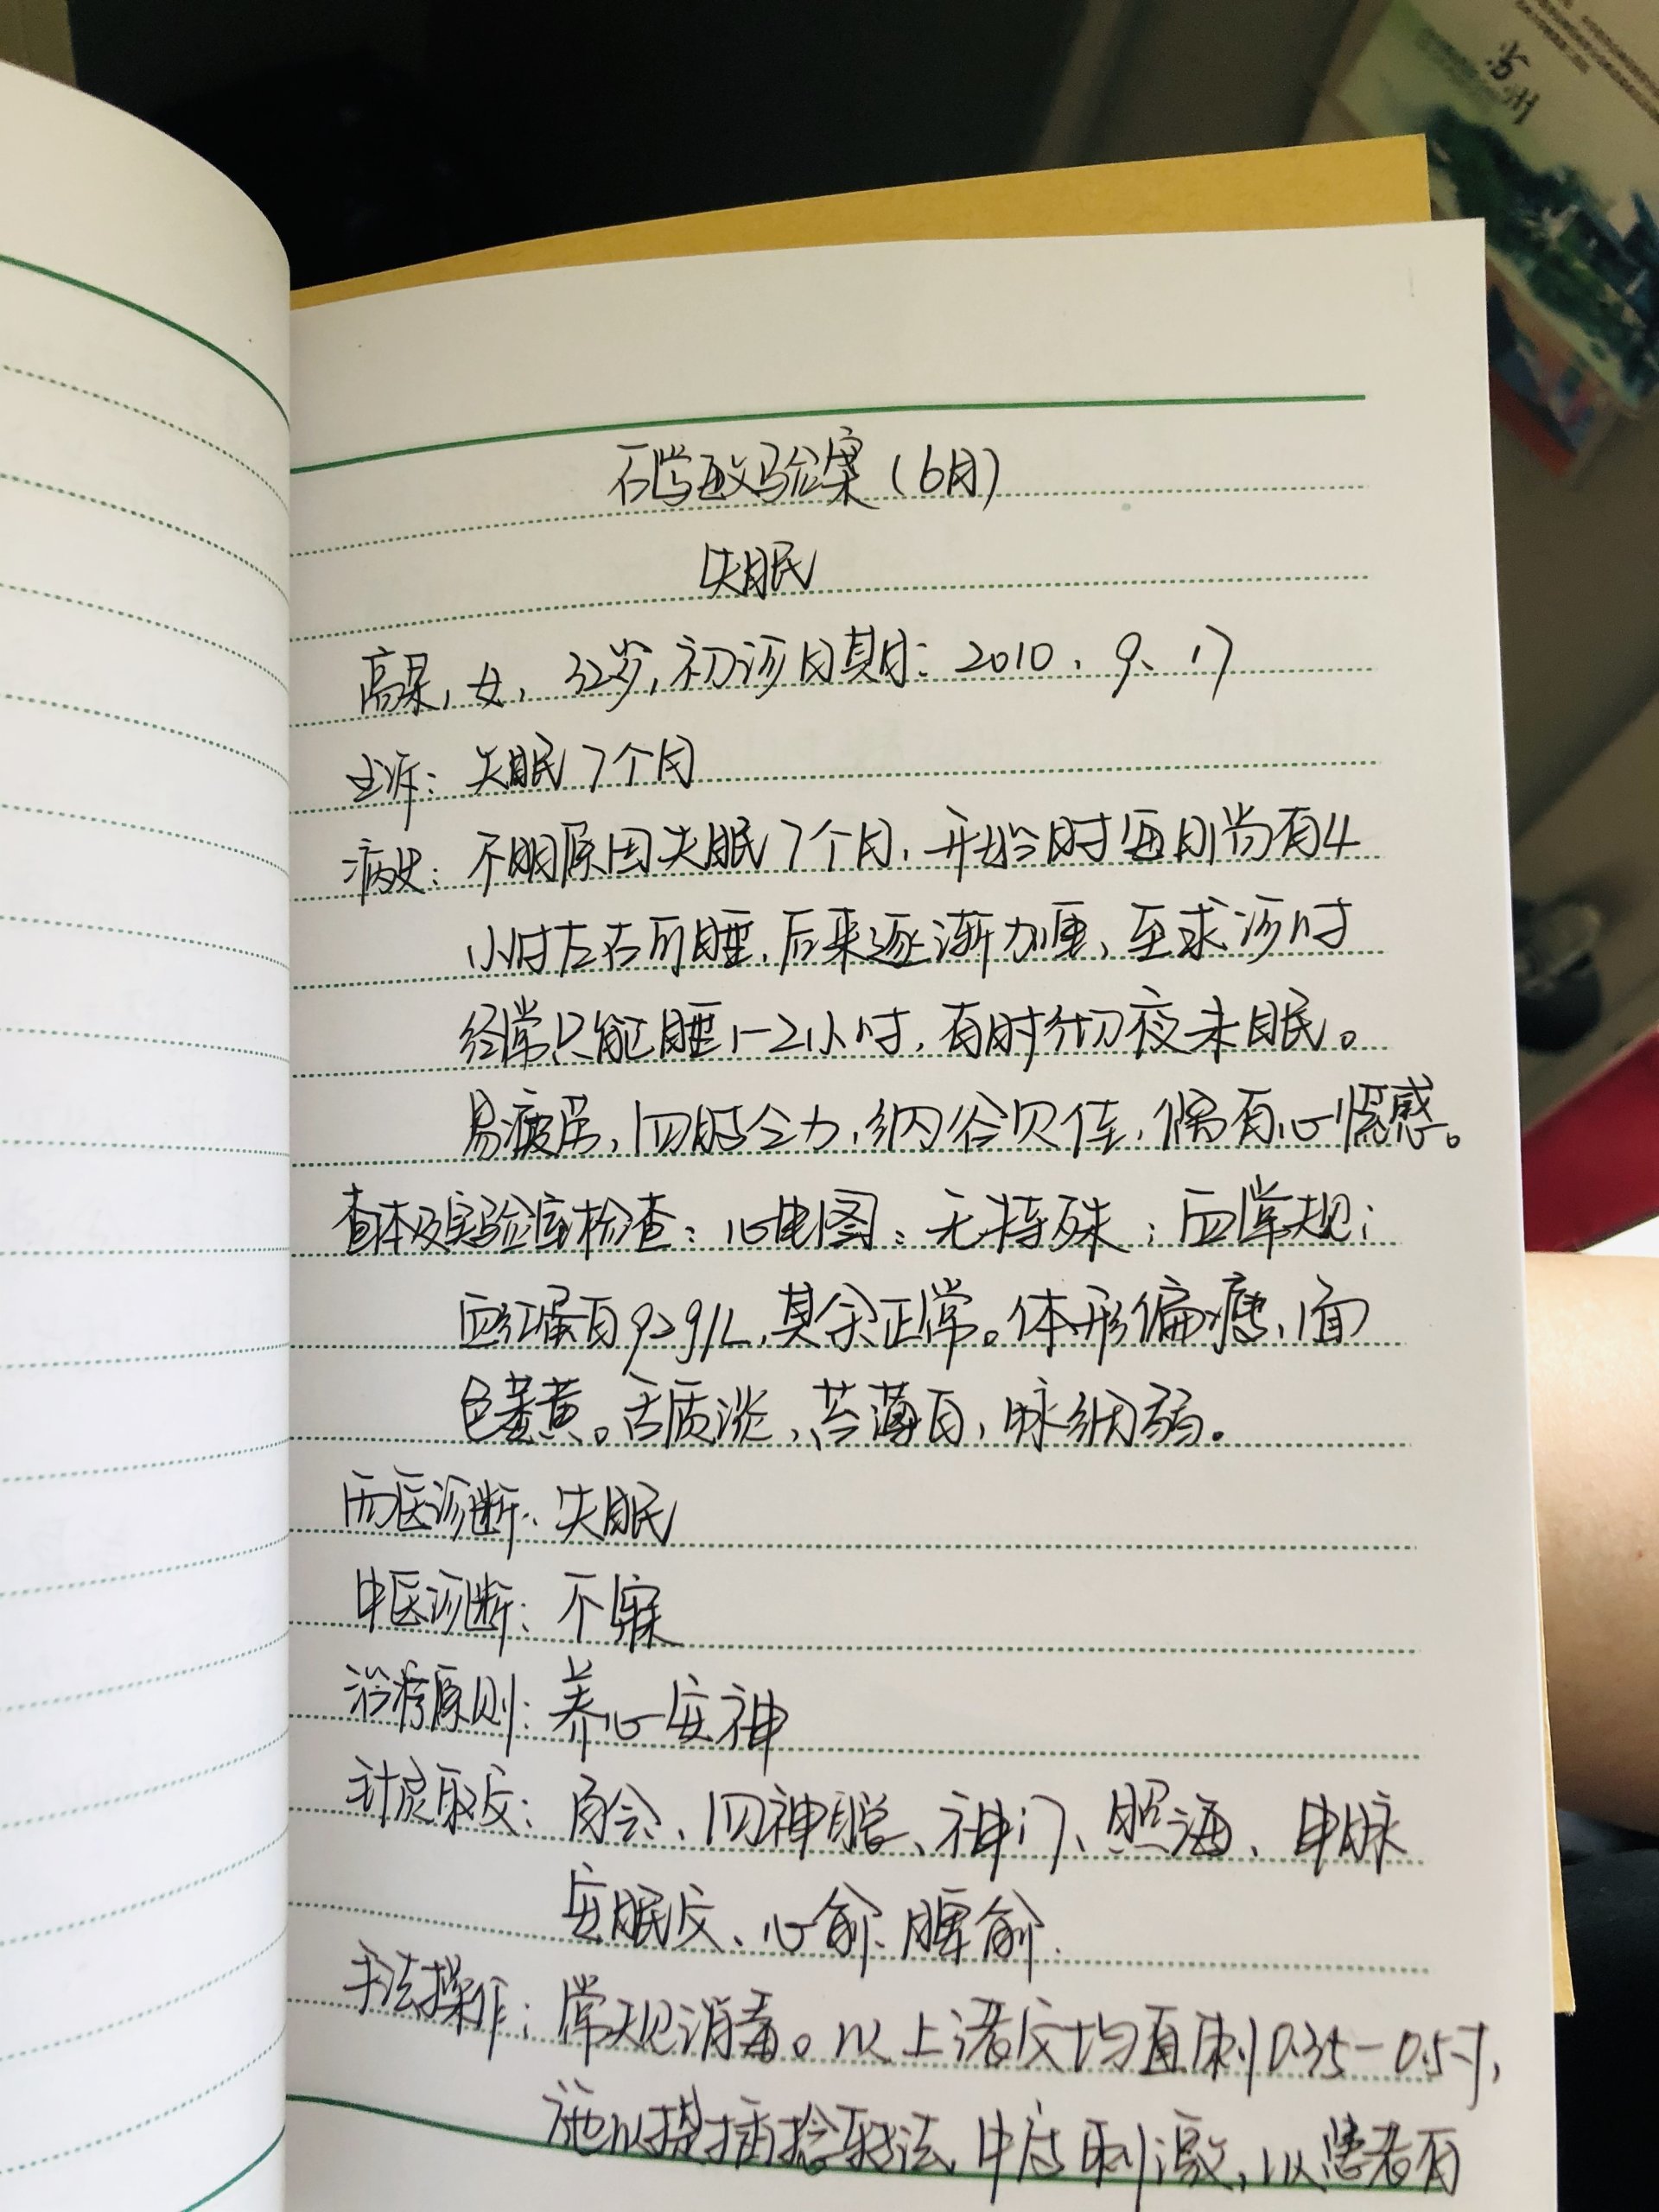 石学敏验案（6月）
失眠
高某，女，32岁，初诊日期：2010、9、17
主诉：失眠7个月
病史：不明原因失眠7个月，开始时每日尚有4
小时左右可睡，后来逐渐加重，至求诊时
经常只能睡1-2小时，有时彻夜未眠。
易疲居，四肢全力，纳谷欠佳，偶有心慌感。
查体及实验室检查：心电图：无特殊；血常规：
血红蛋白92g/L，其余正常。体形偏瘦，面
色萎黄。舌质淡，苔薄白，脉细弱。
西医诊断：失眠
中医诊断：不寐
治疗原则：养心安神
针灸取穴：百会、四神聪、神门、照海、申脉
安眠穴、心俞、脾俞.
手法操作：常规消毒。以上诸穴均直刺0.35-0.5寸，
施以提插捻转法，中度刺激，以患者有